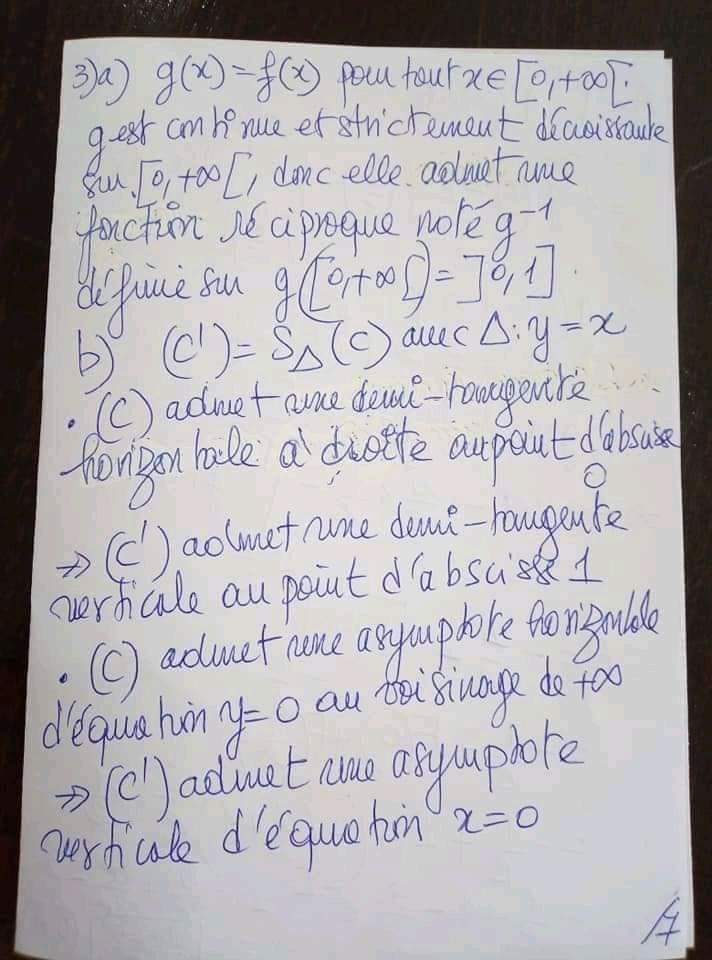 3)a) g(x) = f(x) pour tout x ∈ [0,+∞[.
g est continue et strictement décroissante
sur [0,+∞[, donc elle admet une
fonction réciproque noté g⁻¹
définie sur g([0,+∞[) = ]0,1].
b) (C') = S_Δ (C) avec Δ: y = x
• (C) admet une demi-tangente
horizontale à droite au point d'abscisse
0
→ (C') admet une demi-tangente
verticale au point d'abscisse 1
• (C) admet une asymptote horizontale
d'équation y = 0 au voisinage de +∞
→ (C') admet une asymptote
verticale d'équation x = 0